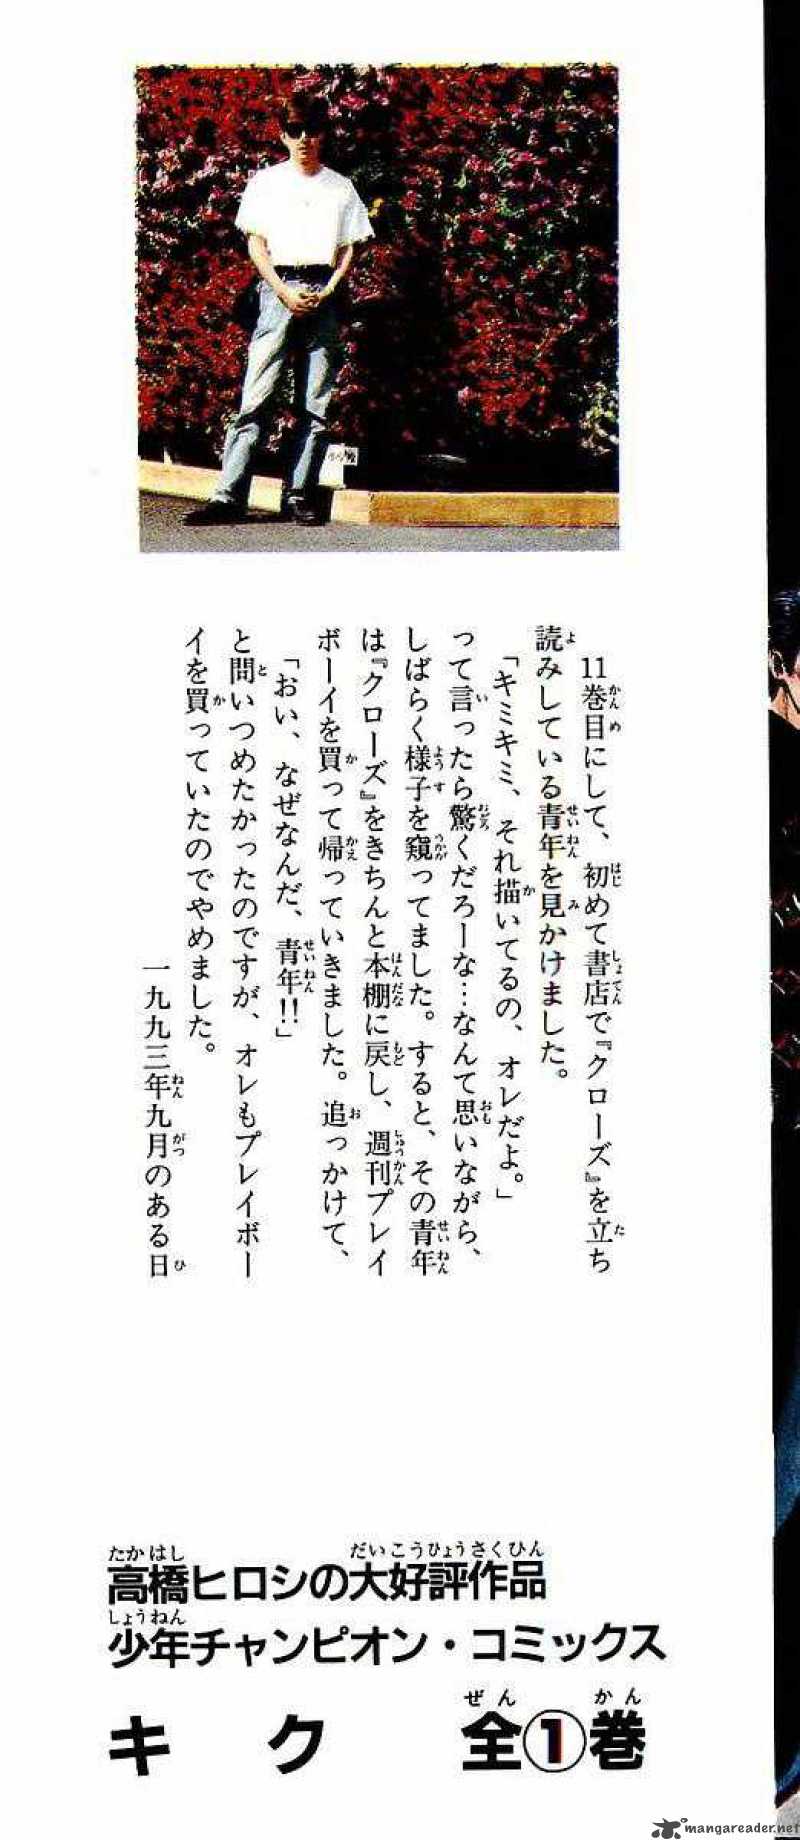 11巻目にして、初めて書店で『クローズ』を立ち
読みしている青年を見かけました。
「キミキミ、それ描いてるの、オレだよ。」
って言ったら驚くだろーな…なんて思いながら、
しばらく様子を窺ってました。すると、その青年
は『クローズ』をきちんと本棚に戻し、週刊プレイ
ボーイを買って帰っていきました。追っかけて、
「おい、なぜなんだ、青年!!」
と問いつめたかったのですが、オレもプレイボー
イを買っていたのでやめました。
一九九三年九月のある日
高橋ヒロシの大好評作品
少年チャンピオン・コミックス
キク 全①巻
mangareader.net